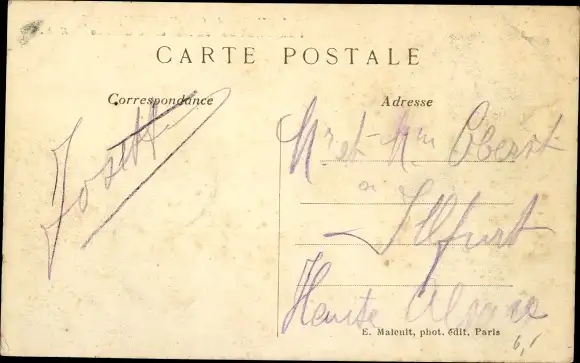 CARTE POSTALE
Correspondance
Josette
Adresse
Mr et Mme Oberst
a
Illfurt
Haute Alsace
E. Malcuit, phot. édit. Paris